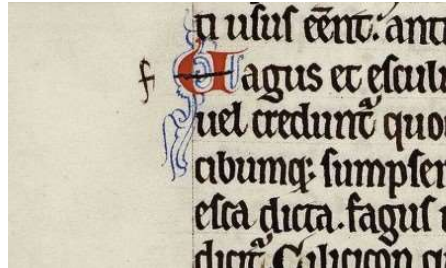 ti usus eēnt: ant
f Uagus et escul
uel credunt̄ quo
cibumq; sumpser
esca dicta. fagus
dicit̄ Ciliicon